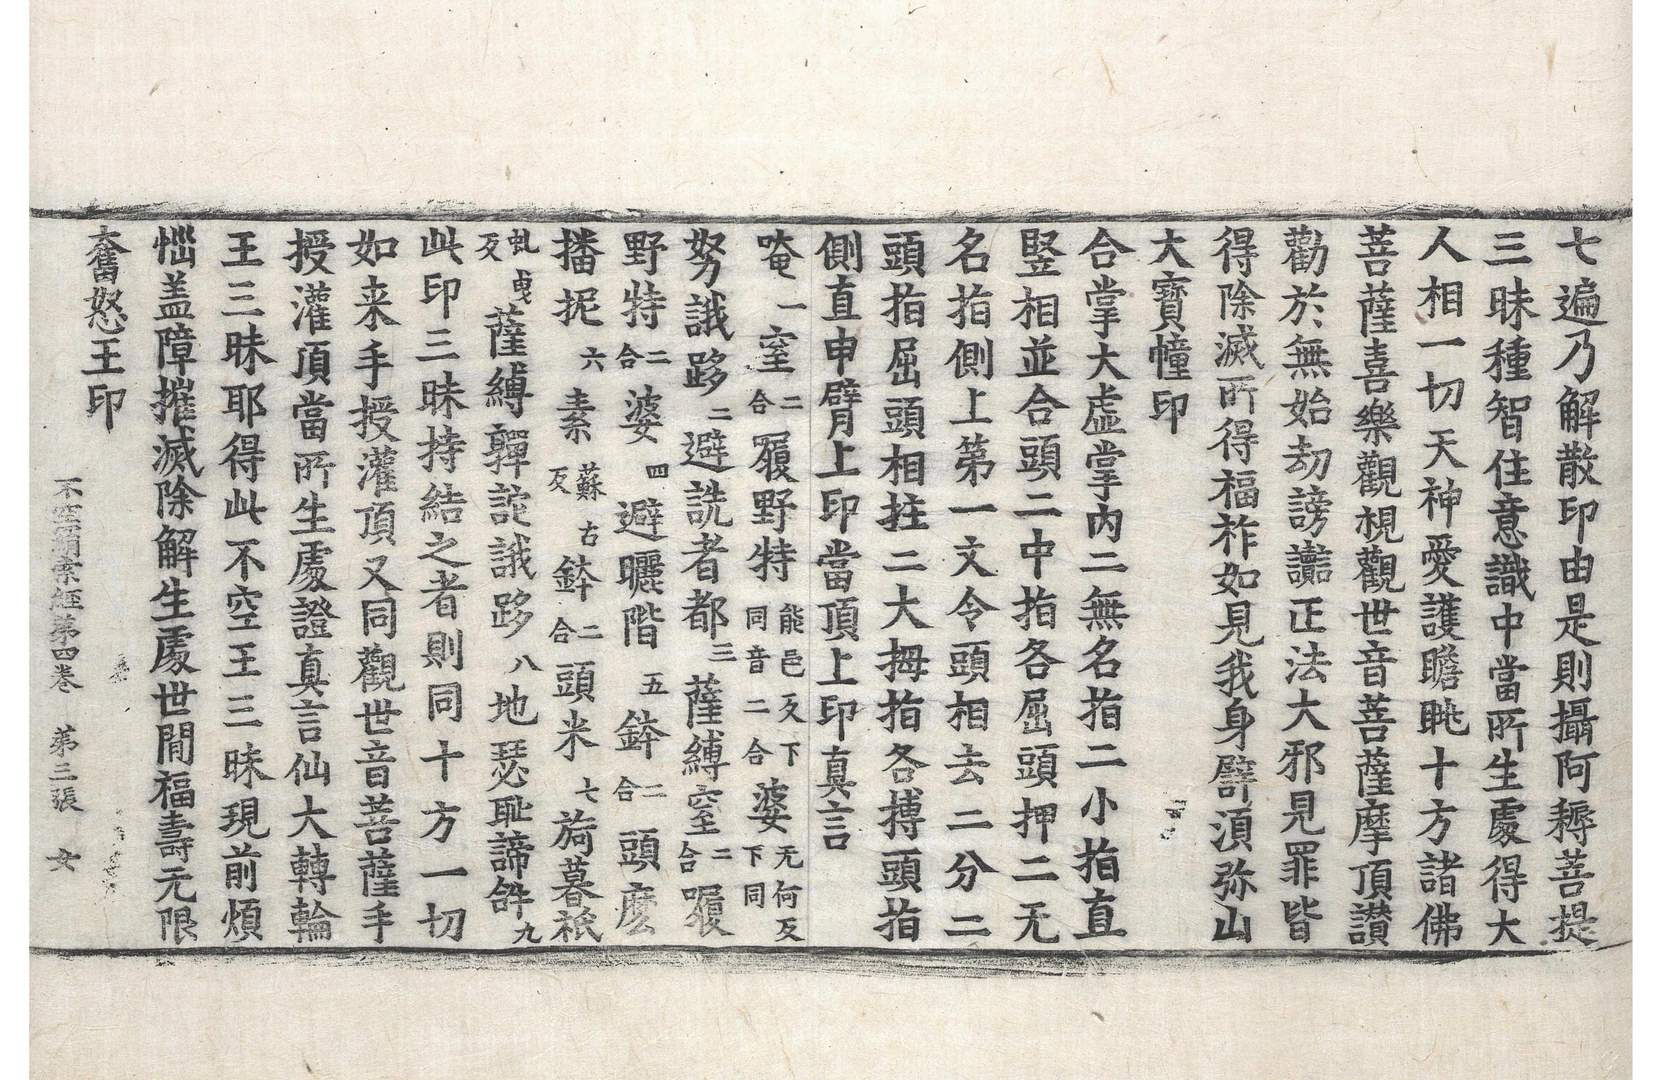 七遍乃解散印由是則攝阿耨菩提
三昧種智住意識中當所生處得大
人相一切天神愛護瞻眺十方諸佛
菩薩喜樂觀視觀世音菩薩摩頂讃
勸於無始劫謗讟正法大邪見罪皆
得除滅所得福柞如見我身譬湏弥山
大寶幢印
合掌大虛掌內二無名指二小指直
竪相並合頭二中指各屈頭押二无
名指側上第一文令頭相去二分二
頭指屈頭相拄二大拇指各搏頭指
側直申臂上印當頂上印真言
唵一窒二合履野特能邑反下同音二合婆无何反下同
努誐跢二避詵者都三薩縛窒二合履
野特二合婆四避曬階五鉢二合頭麽
播抳六素蘇古反鉢二合頭米七旖暮祇
虬曳反薩縛嚲詑誐跢八地瑟耻諦𤙖九
此印三昧持結之者則同十方一切
如来手授灌頂又同觀世音菩薩手
授灌頂當所生處證真言仙大轉輪
王三昧耶得此不空王三昧現前煩
惱盖障摧滅除解生處世間福壽无限
奮怒王印
不空羂索經第四卷 第三張 女